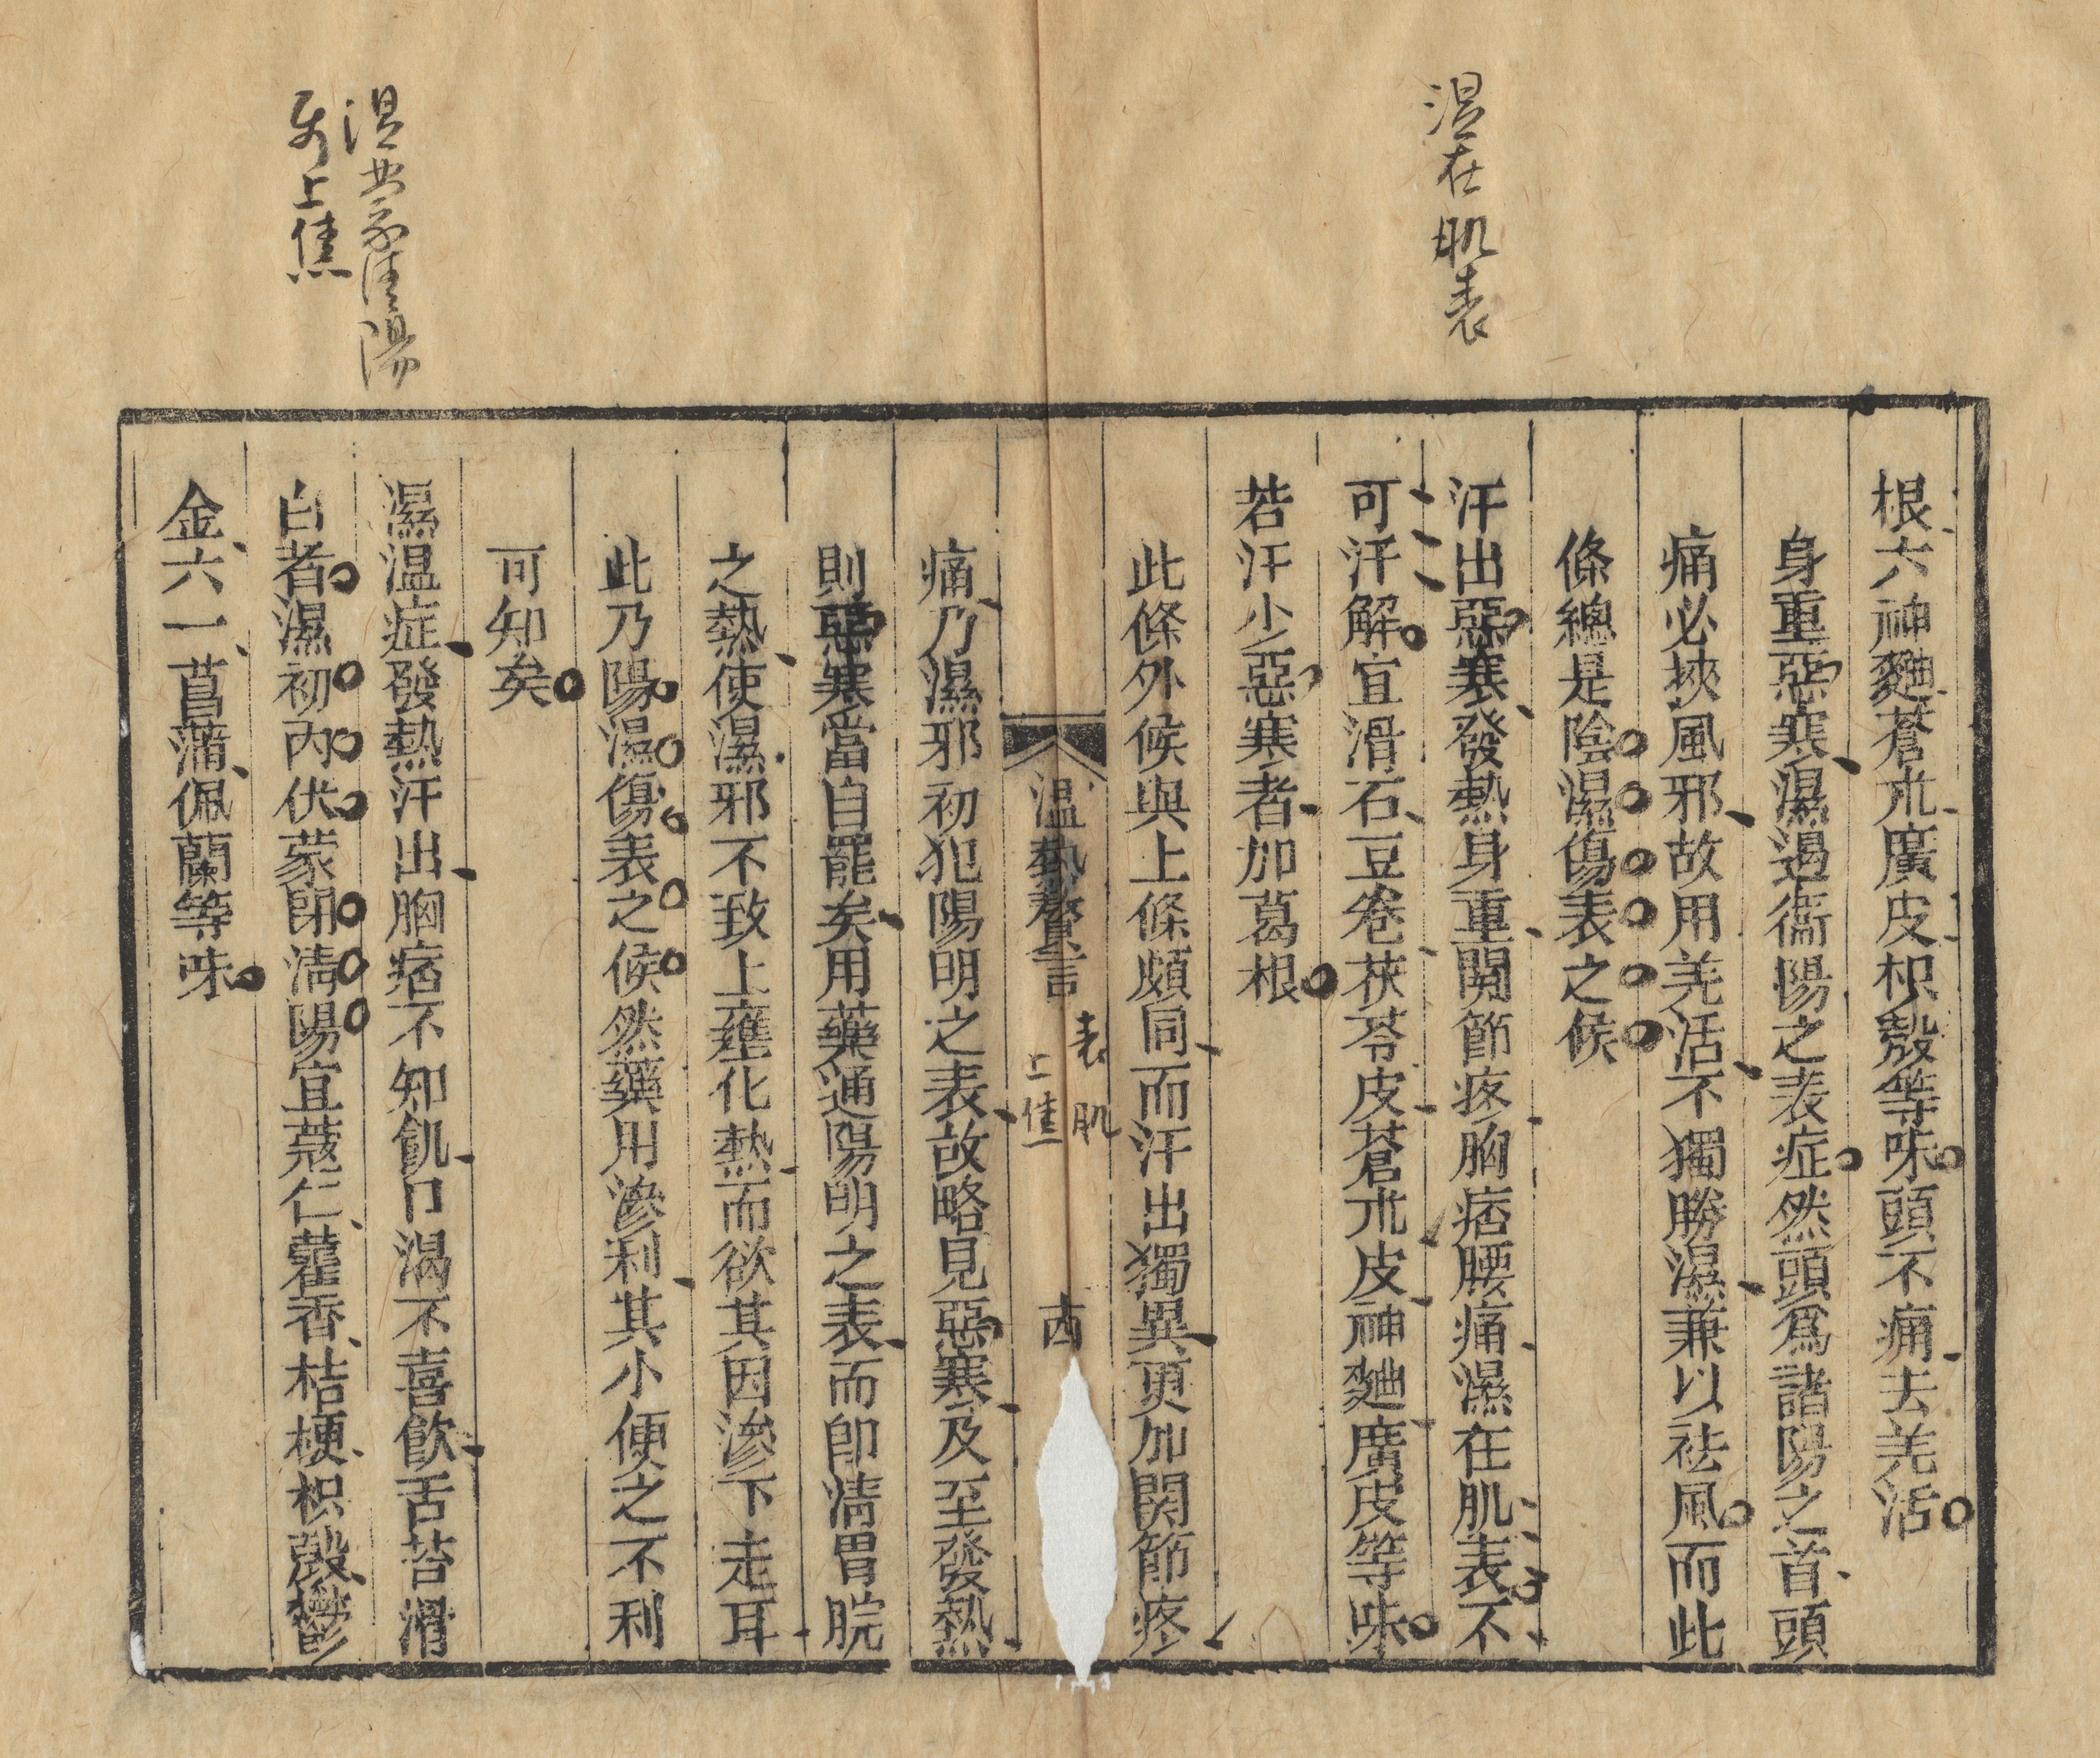 濕在肌表
根六神麯蒼朮廣皮枳殼等味頭不痛去羌活
身重惡寒濕遏衞陽之表症然頭爲諸陽之首頭
痛必挾風邪故用羌活不獨勝濕兼以祛風而此
條總是陰濕傷表之候
汗出惡寒發熱身重關節疼胸痞腰痛濕在肌表不
可汗解宜滑石豆卷茯苓皮蒼朮皮神麯廣皮等味
若汗少惡寒者加葛根
此條外候與上條頗同而汗出獨異更加關節疼
温熱贅言
表 肌
上焦
痛乃濕邪初犯陽明之表故略見惡寒及至發熱
則惡寒當自罷矣用藥通陽明之表而卽淸胃脘
之熱使濕邪不致上壅化熱而欲其因滲下走耳
此乃陽濕傷表之候然藥用滲利其小便之不利
可知矣
濕蒙淸陽
上焦
濕温症發熱汗出胸痞不知飢口渴不喜飮舌苔滑
白者濕初內伏蒙閉淸陽宜蔻仁藿香桔梗枳殼鬱
金六一菖蒲佩蘭等味